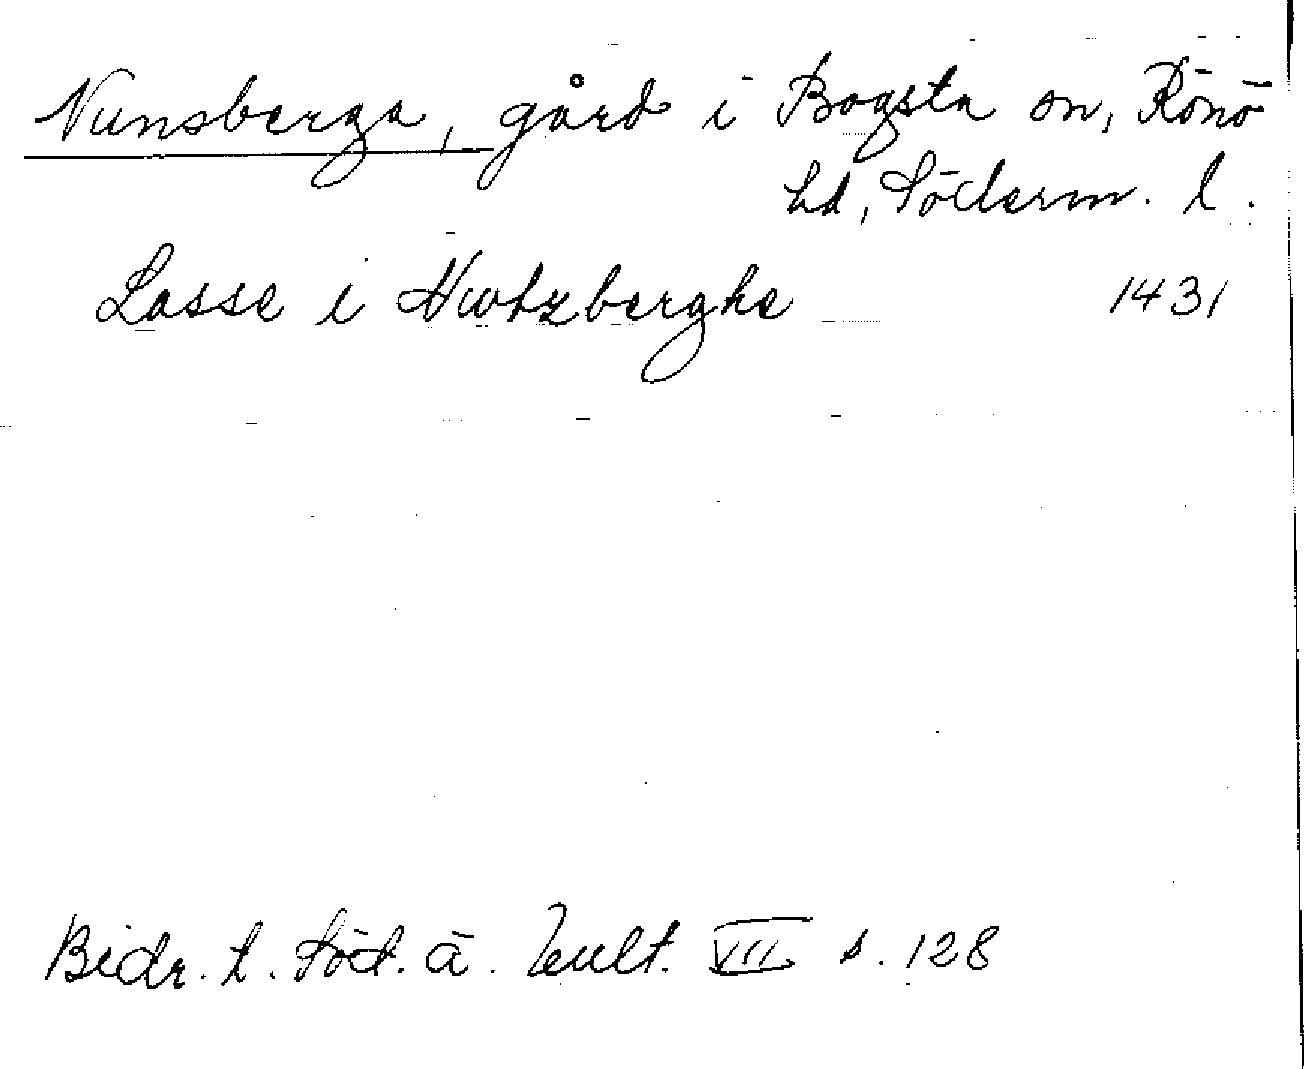 Nunsberga, gård i Bogsta sn, Rönö
hd, Söderm. l.
Lasse i Nwtzberghe 1431
Bidr. t. Söd. ä. kult. VII s. 128